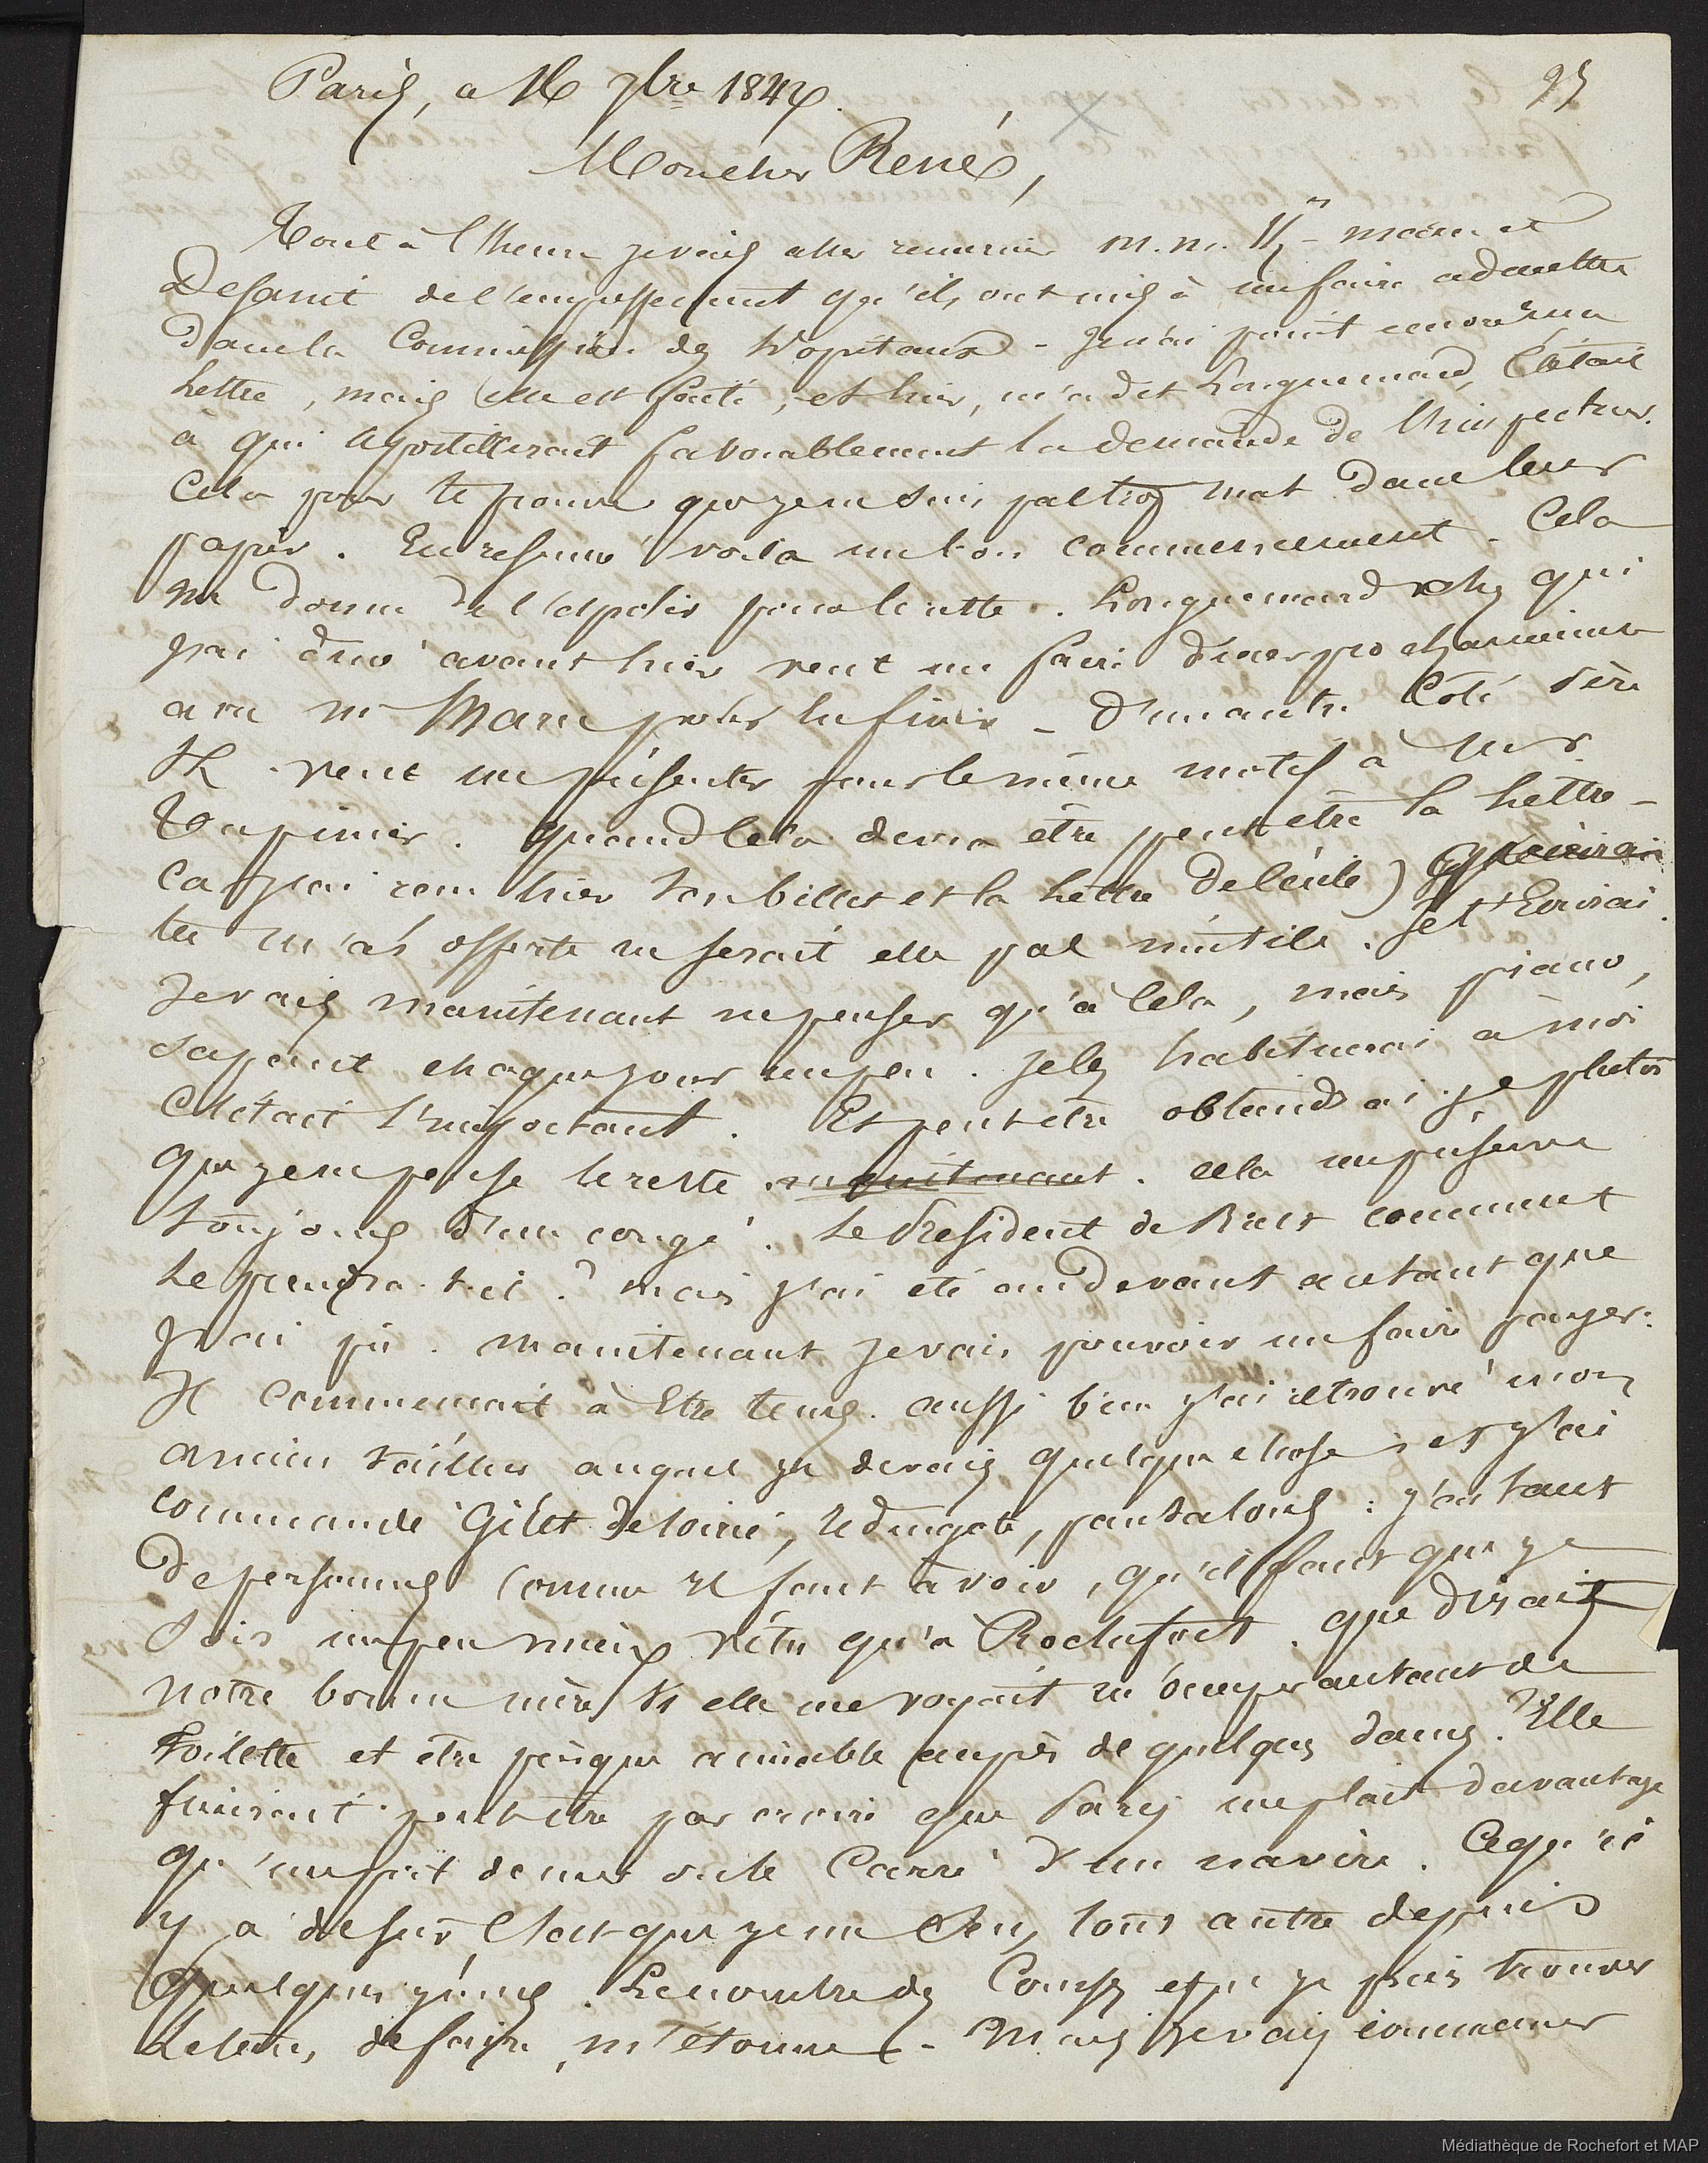 Paris, a 16 7bre 1844.
95
Mon cher René,
Tout à l'heure je vais aller remercier m.m. marec et
de l'empressement qu'ils ont mis à me faire admettre
dans la Commission des hopitaux - Je n'ai point encore ma
Lettre, mais elle est faite, et hier, m'a dit Longuemard, C'était
à qui apostillerait favorablement la demande de l'Inspecteur.
Cela pour te prouver que je ne suis pas trop mal dans leurs
papiers. En résumé voila un bon commencement. Cela
me donne de l'espoir pour le reste. Longuemard chez qui
j'ai diné avant hier veut me faire diner prochainement
avec mr Marec pour en finir - D'un autre Coté
veut me présenter pour le même motif à mr
Tupinier. Quand cela devra être peut être la Lettre -
Car j'ai reçu hier ton billet et la Lettre de
tu m'as offerte ne serait elle pas inutile. Je t'Ecrirai.
Je vais maintenant ne penser qu'à Cela, mais piano,
sapant chaque jour un peu. Je les habituerai à moi
C'était l'important. Et peut etre obtiendrai-je plutôt
que je ne pense le reste maintenant. cela me préserve
toujours d'un congé. Le Président de comment
Le prendra-t-il ? mais j'ai été au devant autant que
J'ai pu. maintenant je vais pouvoir me faire payer.
Il Commencait à Etre temps. aussi bien j'ai retrouvé mon
ancien tailleur auquel je devais quelque chose, et j'ai
commandé Gilet de soirée, redingote, pantalons : j'ai tant
de personnes comme il faut à voir, qu'il faut que je
sois un peu mieux vêtu qu'à Rochefort. que dirait
notre bonne mère si elle me voyait m'occuper autant de
toilette et être presque aimable auprès de quelques dames. Elle
finirait peut-être par croire que Paris me plait davantage
qu'une nuit de mer ou le Carré d'un navire. Ce qu'il
y a de sur C'est que je me sens tout autre depuis
Quelques jours. Le nombre de Courses que je puis trouver
Le temps de faire, m'étonne - Mais je vais commencer
Médiathèque de Rochefort et MAP